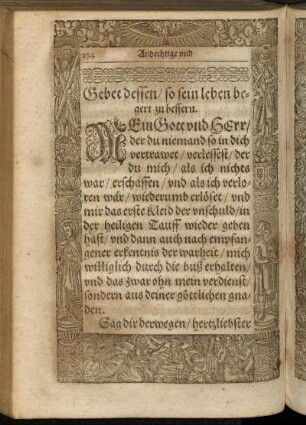 234 Andechtige vnd
Gebet dessen/ so sein leben be-
gert zu bessern.
MEin Gott vnd HErr/
der du niemand so in dich
vertrawet/ verlessest/ der
du mich/ als ich nichts
war/ erschaffen/ vnd als ich verlo-
ren war/ wiederumb erlöset/ vnd
mir das erste Kleid der vnschuld/ in
der heiligen Tauff wieder geben
hast/ vnd dann auch nach empfan-
gener erkentnis der warheit/ mich
williglich durch die buß erhalten/
vnd das zwar ohn mein verdienst/
sondern aus deiner göttlichen gna-
den.
Sag dir derwegen/ hertzliebster